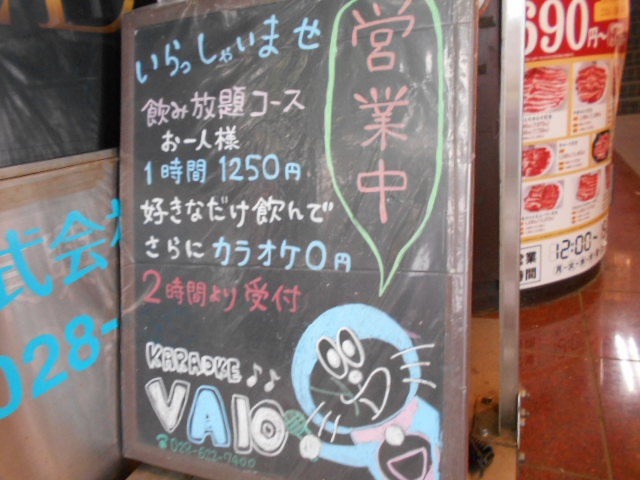 いらっしゃいませ
営業中
飲み放題コース
お一人様
1時間 1250円
好きなだけ飲んで
さらに カラオケ0円
2時間より受付
KARAOKE
VAIO
☎028-622-7400
式会
028-
690円~
営業
時間
12:00~